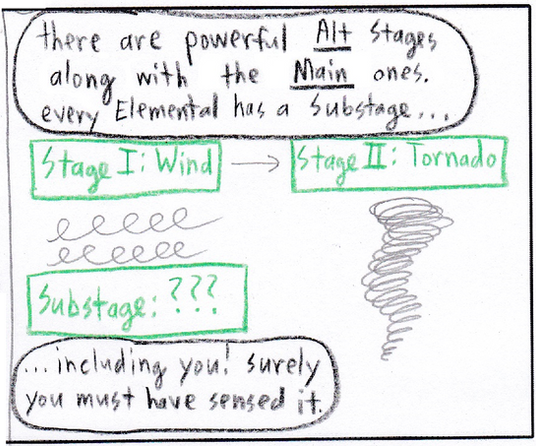 there are powerful Alt stages
along with the Main ones.
every Elemental has a Substage...
Stage I: Wind
Stage II: Tornado
Substage: ???
...including you! surely
you must have sensed it.